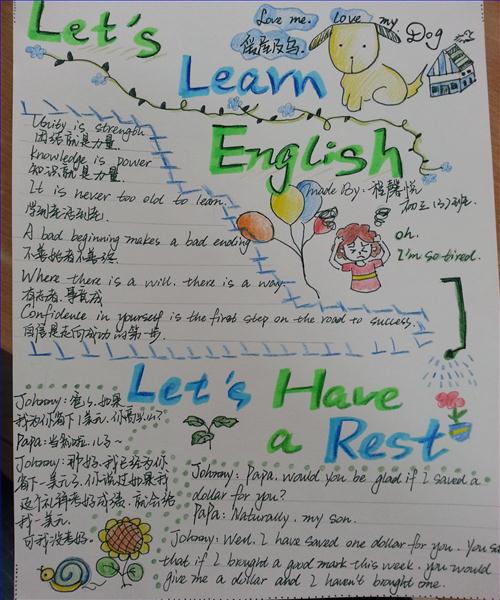 Let's
Learn
English
Love me. love my Dog
爱屋及乌.
Made By: 程馨悦
初三(3)班.
Unity is strength
团结就是力量.
Knowledge is power
知识就是力量.
It is never too old to learn.
学到老活到老.
A bad beginning makes a bad ending
不善始者不善终.
Where there is a will. there is a way
有志者事竟成
Confidence in yourself is the first step on the road to success.
自信是走向成功的第一步.
oh.
I'm so tired.
Let's Have
a Rest
Johnny: 爸爸. 如果
我为你省下1美元. 你高兴么?
Papa: 当然啦. 儿子~
Johnny: 那好. 我已经为你
省下一美元了. 你说过如果我
这个礼拜考好成绩. 就会给
我一美元.
可我没考好.
Johnny: Papa. would you be glad if I saved a
dollar for you?
Papa: Naturally. my son.
Johnny: Well. I have saved one dollar for you. You sa
that if I brought a good mark this week. you would
give me a dollar and I haven't brought one.